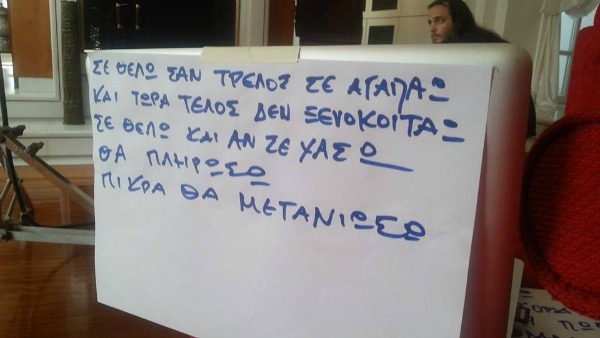 ΣΕ ΘΕΛΩ ΣΑΝ ΤΡΕΛΟΣ ΣΕ ΑΓΑΠΑΩ
ΚΑΙ ΤΩΡΑ ΤΕΛΟΣ ΔΕΝ ΞΕΝΟΚΟΙΤΑΩ
ΣΕ ΘΕΛΩ ΚΑΙ ΑΝ ΣΕ ΧΑΣΩ
ΘΑ ΠΛΗΡΩΣΩ
ΠΙΚΡΑ ΘΑ ΜΕΤΑΝΙΩΣΩ